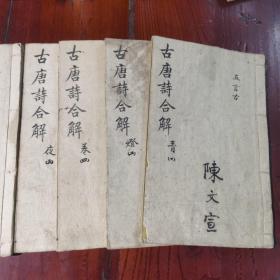 五言古
古唐詩合解
青
陳文宣
古唐詩合解
燈
古唐詩合解
卷四
古唐詩合解
夜